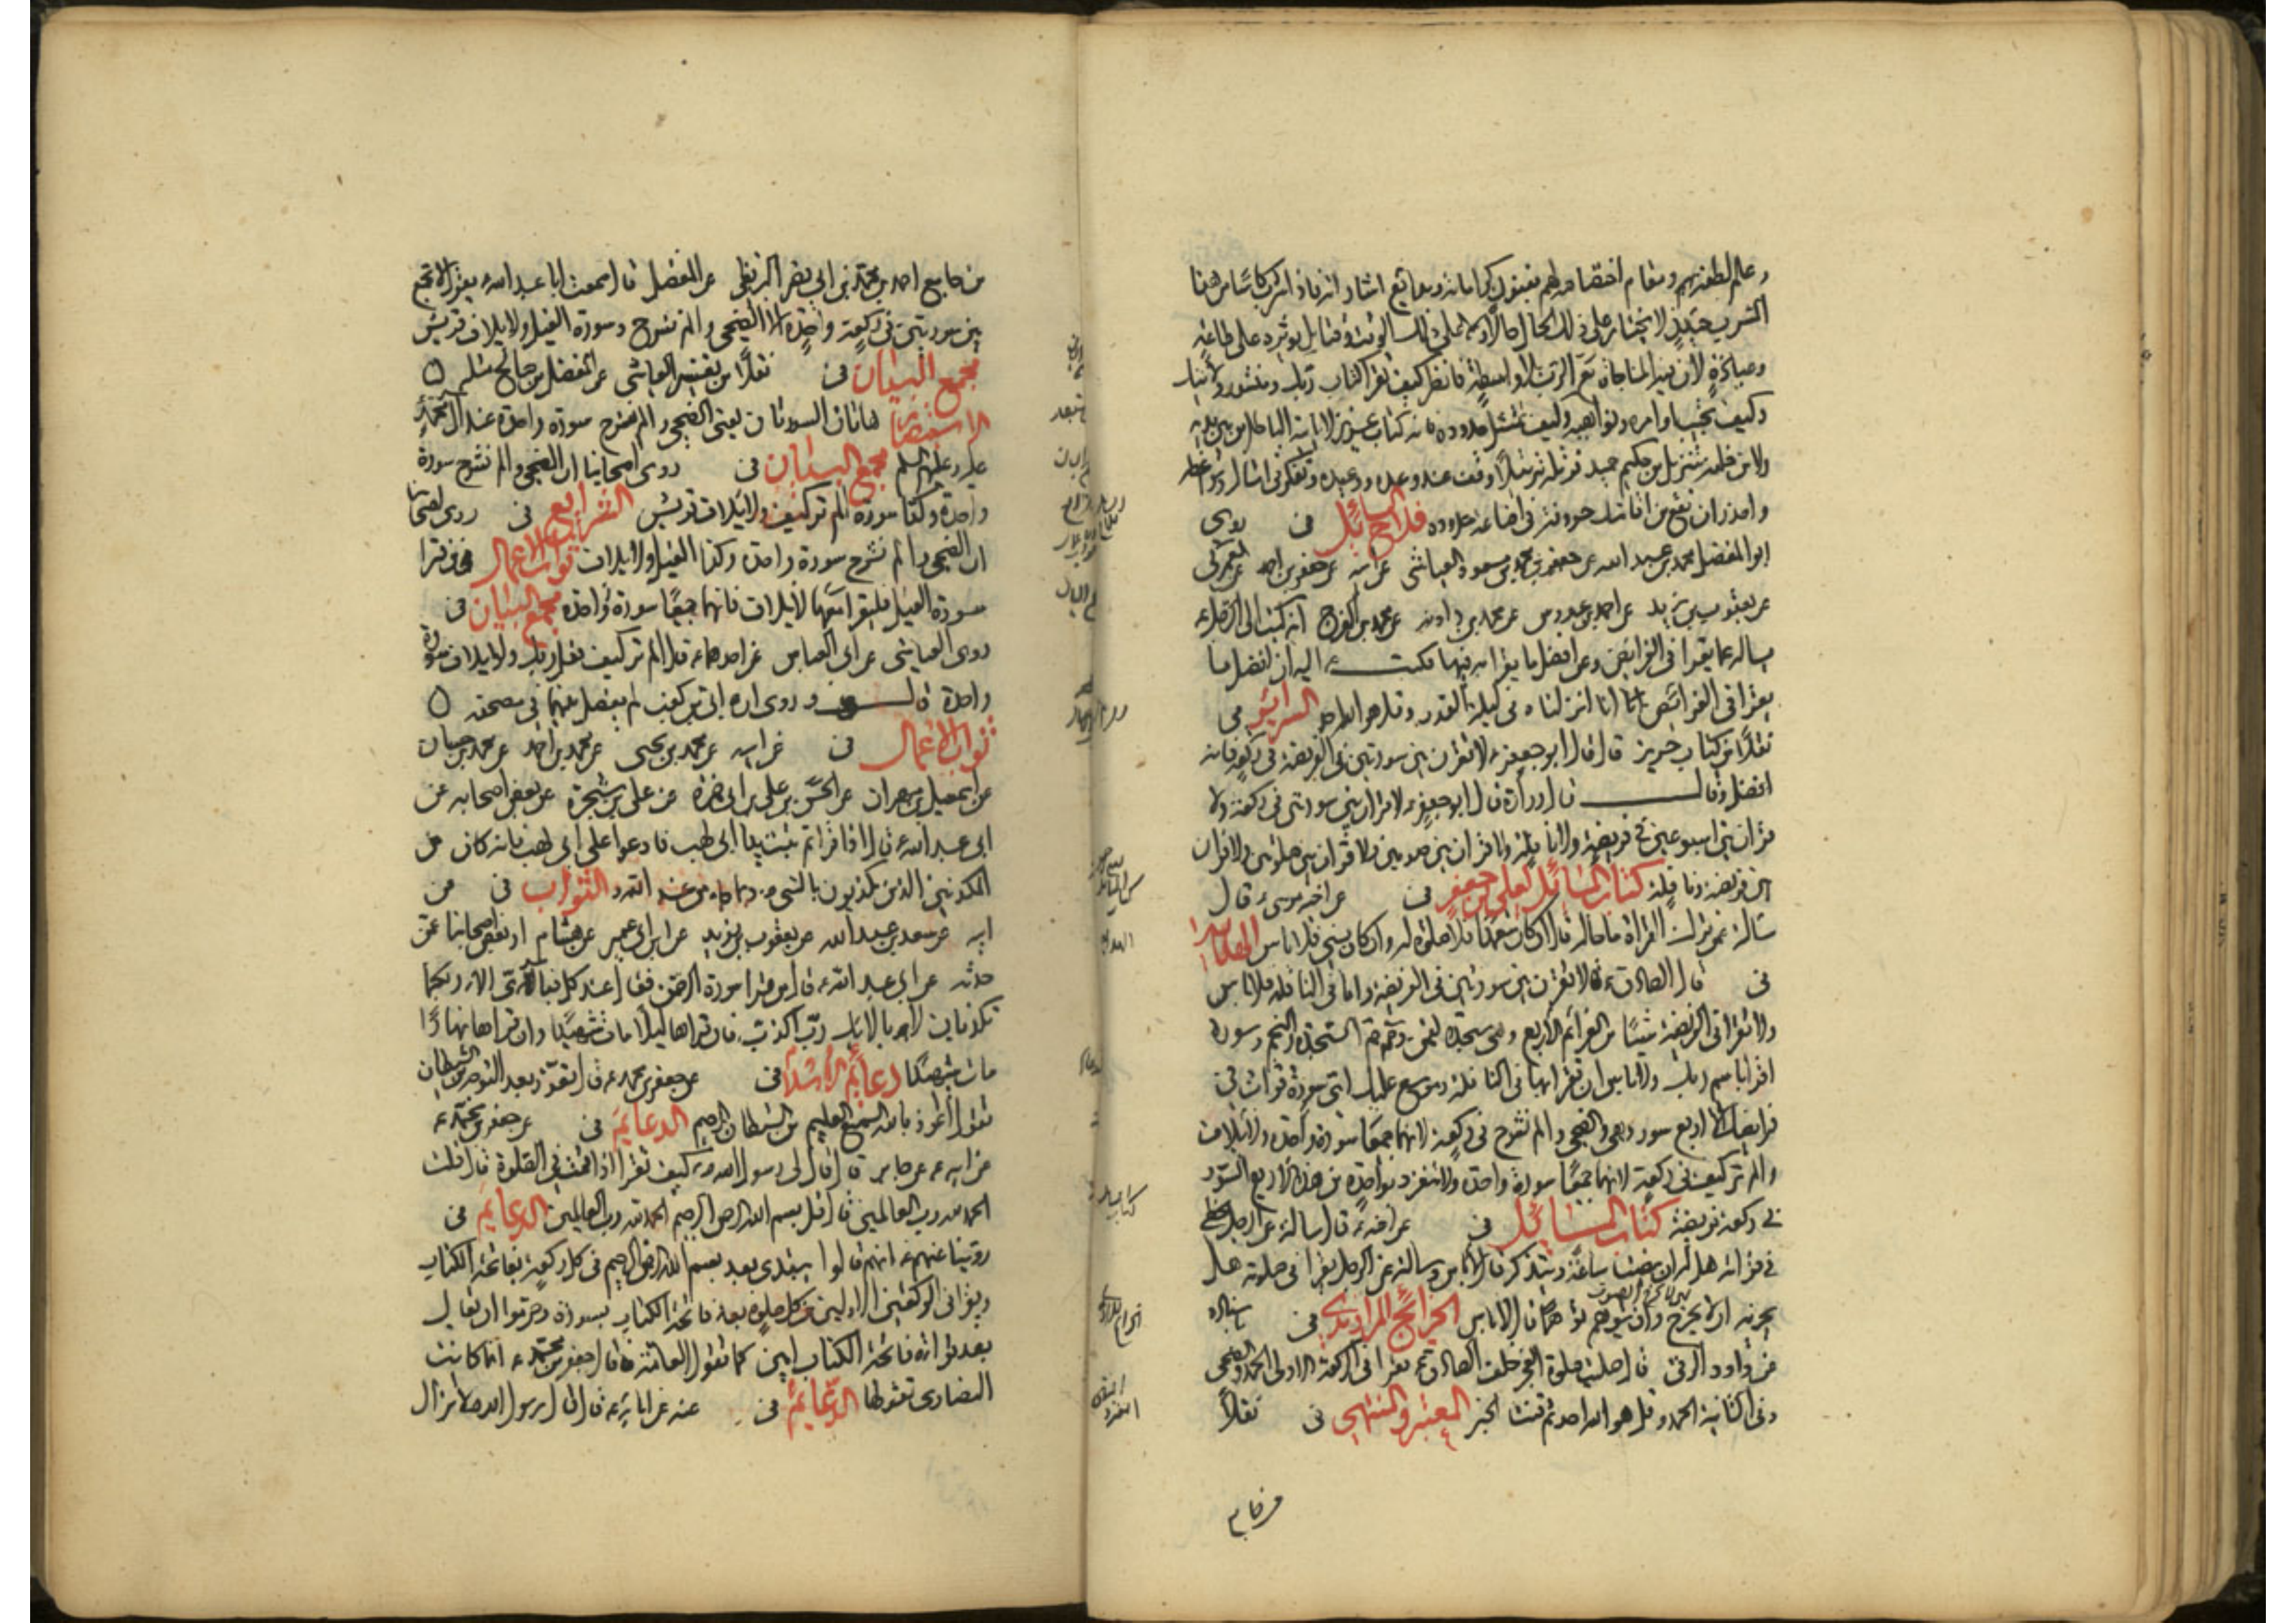 وعالم لطفه بهم ومقام اختصاصه لهم بفنون كراماته وبدايع اشاراته فاذا شربت كاسا من هذا
الشرب حينئذ لا تختار على ذلك الحال حالا ولا على ذلك الوقت وقتا بل تؤثره على كل طاعة
وعبادة لان فيه المناجاة مع الرب بلا واسطة فانظر كيف تقرا كتاب ربك ومنشور ولايتك
وكيف تجيب اوامره ونواهيه وكيف تمتثل حدوده فانه كتاب عزيز لا ياتيه الباطل من بين يديه
ولا من خلفه تنزيل من حكيم حميد فرتله ترتيلا وقف عند وعده ووعيده وتفكر في امثاله ومواعظه
واحذر ان تقع من اقامتك حروفه في اضاعة حدوده فلاح السائل في روى
ابو المفضل محمد بن عبد الله عن جعفر بن محمد بن مسعود العياشي عن ابيه عن جعفر بن احمد عن العمركي
عن يعقوب بن يزيد عن احمد بن عبدوس عن محمد بن دادنه عن محمد بن الفرج انه كتب الى الرجل ع
يساله عما يقرا في الفرايض وعن افضل ما يقرا به فيها فكتب ع اليه ان افضل ما
يقرا في الفرائض انا انزلناه في ليلة القدر وقل هو الله احد السرائر في
نقلا من كتاب حريز قال قال ابو جعفر ع لا تقرن بين سورتين في الفريضة في ركعة فانه
افضل وقال قال زرارة قال ابو جعفر ع لا قران بين سورتين في ركعة ولا
قران بين اسبوعين في فريضة ولا نافلة ولا قران بين صومين ولا قران بين صلوتين ولا قران
بين فريضة ونافلة كتاب المسائل لعلي بن جعفر في عن اخيه موسى ع قال
سالته عمن ترك القراءة ما حاله قال ان كان متعمدا فلا صلوة له وان كان نسي فلا باس الهداية
في قال الصادق ع لا تقرن بين سورتين في الفريضة واما في النافلة فلا باس
ولا تقرا في الفريضة شيئا من العزائم الاربع وهي سجدة لقمن وحم السجدة والنجم وسورة
اقرا باسم ربك ولا باس ان تقرا بها في النافلة وموسع عليك اي سورة قرات في
فرايضك الا اربع سور وهي والضحى والم نشرح في ركعة لانهما جميعا سورة واحدة ولايلاف
والم تر كيف في ركعة لانهما جميعا سورة واحدة ولا تنفرد بواحدة من هذه الاربع السور
في ركعة فريضة كتاب المسائل في عن اخيه ع قال سالته عن الرجل يخطي
في قراءته هل له ان ينصت ساعة ويتذكر قال لا باس وسالته عن الرجل يقرا في صلوته هل
يجزيه ان لا يخرج وان يتوهم توهما قال لا باس الخرائج للراوندي في باسناده
عن داود الرقي قال صليت صلوة الفجر خلف الصادق ع فقرا في الركعة الاولى الحمد والضحى
وفي الثانية الحمد وقل هو الله احد ثم قنت الخبر المعتبر والمنتهى في نقلا
من جامع
من جامع احمد بن محمد بن ابي نصر البزنطي عن المفضل قال سمعت ابا عبد الله ع يقول لا تجمع
بين سورتين في ركعة واحدة الا الضحى والم نشرح وسورة الفيل ولايلاف قريش
مجمع البيان في نقلا من تفسير العياشي عن المفضل بن صالح مثله
الاستبصار هاتان السورتان يعني الضحى والم نشرح سورة واحدة عند آل محمد
عليه وعليهم السلم مجمع البيان في روى اصحابنا ان الضحى والم نشرح سورة
واحدة وكذا سورة الم تر كيف ولايلاف قريش الشرايع في روى اصحابنا
ان الضحى والم نشرح سورة واحدة وكذا الفيل ولايلاف ثواب الاعمال في من قرا
سورة الفيل فليقرا معها لايلاف فانهما جميعا سورة واحدة مجمع البيان في
روى العياشي عن ابي العباس عن احدهما ع قال الم تر كيف فعل ربك ولايلاف سورة
واحدة قال وروى ان ابي بن كعب لم يفصل بينهما في مصحفه
ثواب الاعمال في عن ابيه عن محمد بن يحيى عن محمد بن احمد عن محمد بن حسان
عن اسمعيل بن مهران عن الحسن بن علي بن ابي حمزة عن علي بن شجرة عن بعض اصحابه عن
ابي عبد الله ع قال اذا قراتم تبت يدا ابي لهب فادعوا على ابي لهب فانه كان من
المكذبين الذين يكذبون بالنبي ص وبما جاء به من عند الله الثواب في عن
ابيه عن سعد بن عبد الله عن يعقوب بن يزيد عن ابن ابي عمير عن هشام او بعض اصحابنا عمن
حدثه عن ابي عبد الله ع قال من قرا سورة الرحمن فقال عند كل فباي آلاء ربكما
تكذبان لا بشيء من آلائك رب اكذب فان قراها ليلا مات شهيدا وان قراها نهارا
مات شهيدا دعائم الاسلام في عن جعفر بن محمد ع قال تعوذ بعد التوجه من الشيطان
تقول اعوذ بالله السميع العليم من الشيطان الرجيم الدعايم في عن جعفر بن محمد ع
عن ابيه ع عن جابر قال قال لي رسول الله ص كيف تقرا اذا قمت في الصلوة قال قلت
الحمد لله رب العالمين قال قل بسم الله الرحمن الرحيم الحمد لله رب العالمين الدعايم في
روينا عنهم ع انهم قالوا يبتدى بعد بسم الله الرحمن الرحيم في كل ركعة بفاتحة الكتاب
ويقرا في الركعتين الاوليين من كل صلوة بعد فاتحة الكتاب بسورة وحرموا ان يقال
بعد قراءة فاتحة الكتاب امين كما تقول العامة قال جعفر بن محمد ع انما كانت
النصارى تقولها الدعايم في عنه عن آبائه ع قال قال رسول الله ص لا تزال